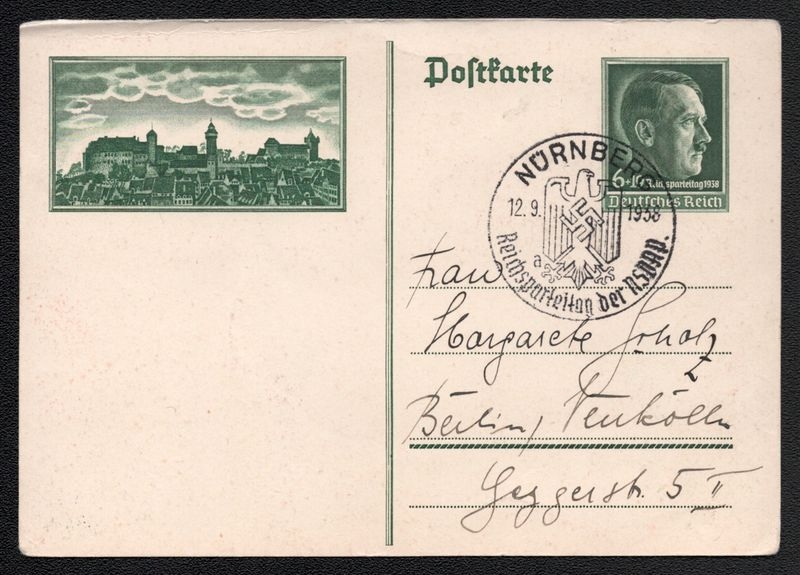 Postkarte
6+19 Reichsparteitag 1938
Deutsches Reich
NÜRNBERG
12.9. 1938
a
Reichsparteitag der NSDAP.
Frau
Margarete Scholz
Berlin, Neukölln
5 II